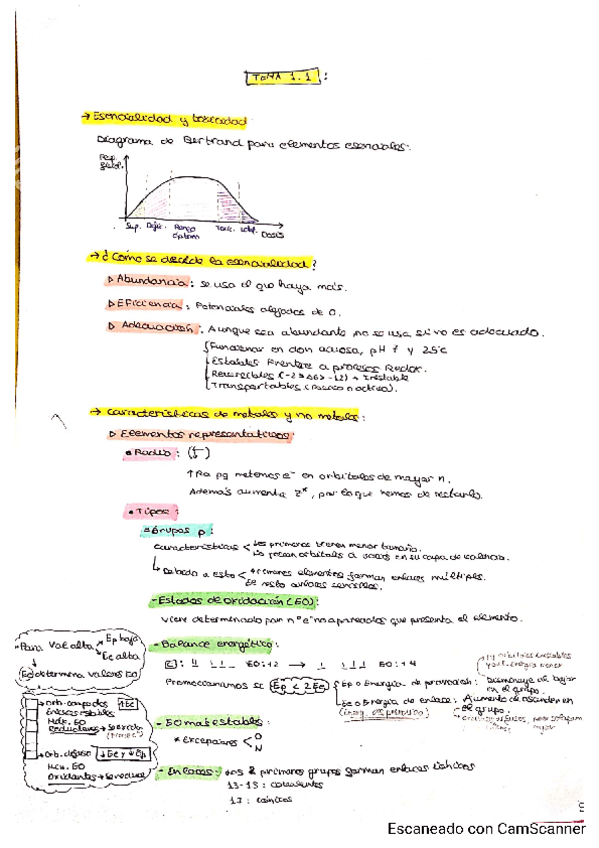 TEMA 1.1 :
→ Esencialidad y toxicidad
Diagrama de Bertrand para elementos esenciales:
Resp.
fisiol.
Sup. Defic. Rango Toxic. Letal. Dosis
óptimo
→ ¿Cómo se decide la esencialidad?
▷ Abundancia: se usa el que haya más.
▷ Eficiencia: Potenciales alejados de 0.
▷ Adecuación: Aunque sea abundante no se usa si no es adecuado.
Funcionar en dcon acuosa, pH 7 y 25ºC
Estables frente a procesos Redox.
Reversibles (-2 > ΔG > -12) → Inestable
Transportables (Pasivo o activo).
→ Características de metales y no metales:
▷ Elementos representativos:
• Radio:
↑Ra pq metemos e⁻ en orbitales de mayor n.
Además aumenta Z*, por lo que hemos de restarlo.
• Tipos:
Grupos p:
Características < Los primeros tienen menor tamaño.
No tienen orbitals d vacíos en su capa de valencia.
Debido a esto < Primeros elementos forman enlaces múltiples.
El resto enlaces sencillos.
- Estados de oxidación (EO):
Viene determinado por nº e⁻ no apareados que presenta el elemento.
- Balance energético:
EO: +2 → EO: +4
Promocionamos si Ep < 2Ee
Ep o Energía de promoción:
Disminuye al bajar en el grupo.
Ee o Energía de enlace: Aumenta al ascender en el grupo.
Para Val alta
Ep baja
Ee alta
Ee determina valores EO
Orb. compactos ↑Ee
Enlaces estables
Máx. EO
Reductores → Se oxida
Orb. difuso ↓Ee y ↓Ep
Mín. EO
Oxidantes → Se reduce
- EO más estables:
* Excepciones < O
N
- Enlaces: Los 2 primeros grupos forman enlaces iónicos
13-18: covalentes
17: iónicos
Escaneado con CamScanner